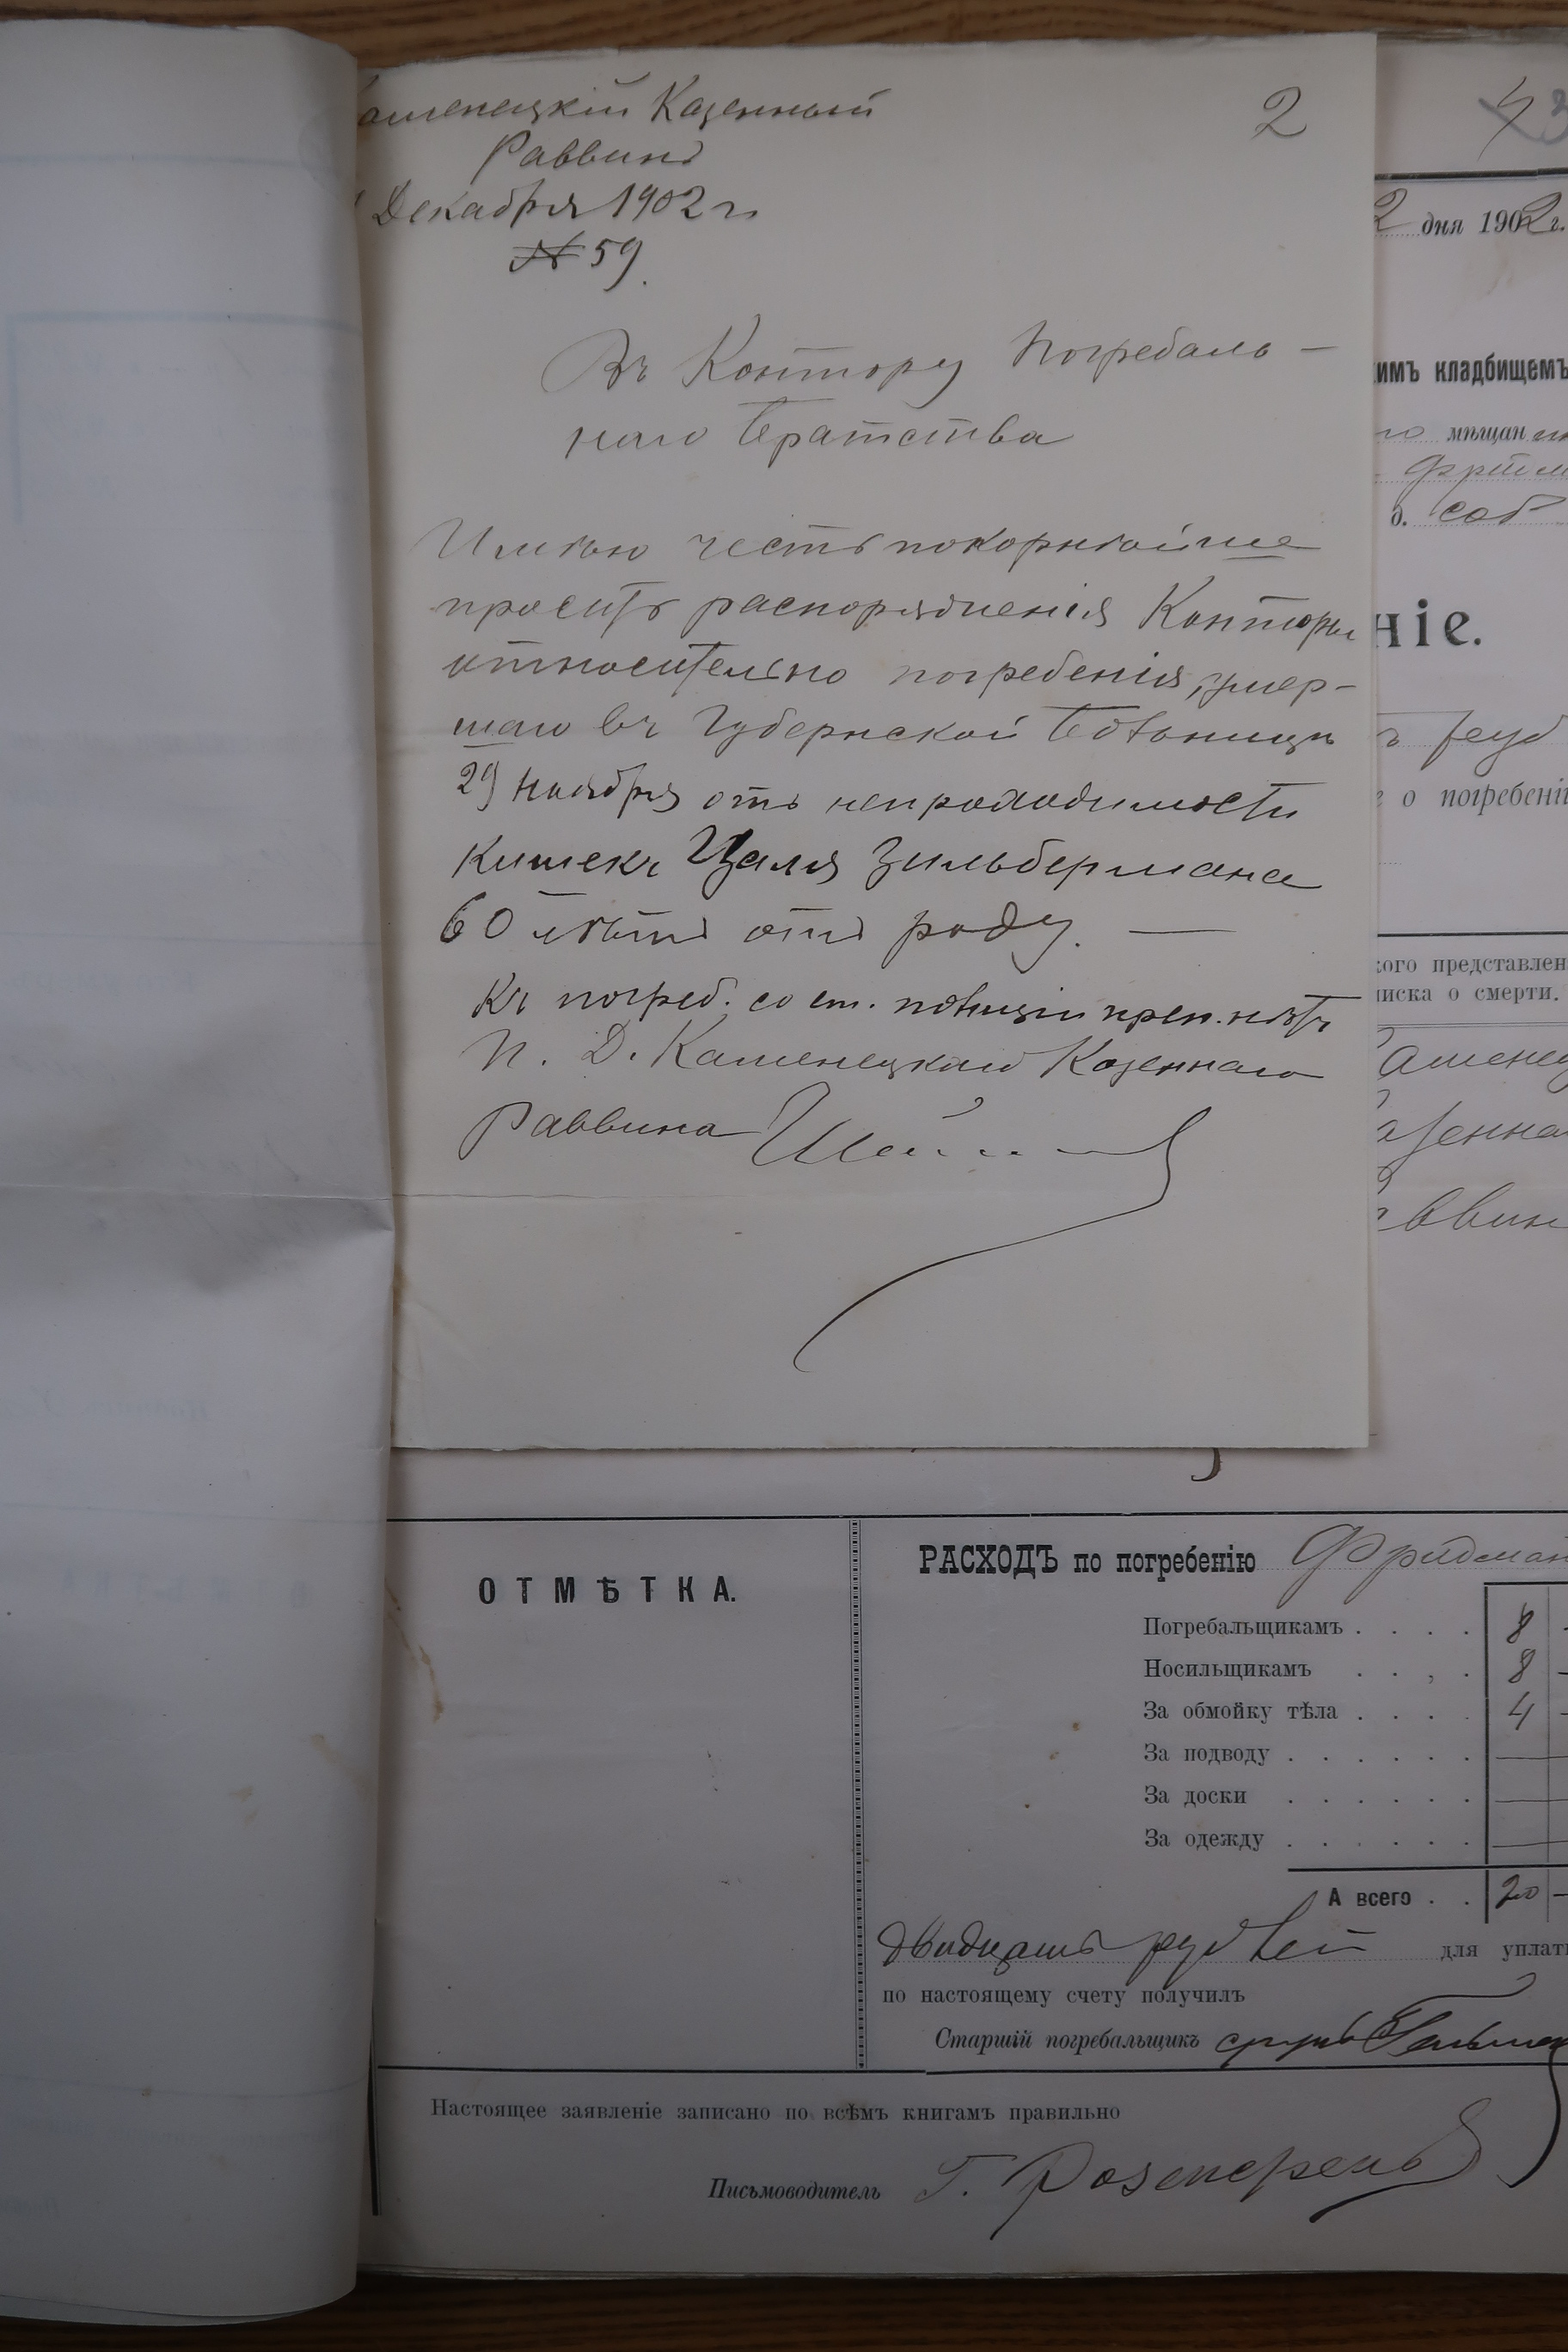 аменецкій Казенный
Раввинъ
Декабря 1902 г.
№ 59.
2
Въ Контору Погребаль-
наго Братства
Имѣю честь покорнѣйше
просить распоряженія Конторы
относительно погребенія, умер-
шаго въ Губернской Больницѣ
29 Ноября отъ непроходимости
кишекъ Цаля Зильбермана
60 лѣтъ отъ роду. —
Къ погреб. со ст. полиціи преп. нѣтъ
И. Д. Каменецкаго Казеннаго
Раввина
3
2 дня 1902 г.
имъ кладбищемъ
го мѣщан
д. соб
ніе.
ъ руб
е о погребені
кого представлен
иска о смерти.
аменец
азенна
ввин
ОТМѢТКА.
РАСХОДЪ по погребенію Фридман
Погребальщикамъ . . . . 8 -
Носильщикамъ . . , . 8 -
За обмойку тѣла . . . . 4 -
За подводу . . . . . . —
За доски . . . . . . —
За одежду . . . . . . —
А всего . . 20 -
двадцать рублей для уплат
по настоящему счету получилъ
Старшій погребальщикъ
Настоящее заявленіе записано по всѣмъ книгамъ правильно
Письмоводитель Г.